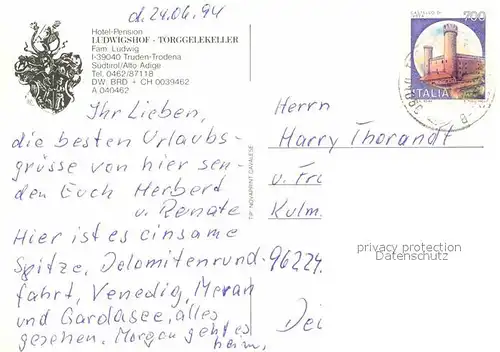 d. 24.06.94
Hotel-Pension
LUDWIGSHOF · TORGGELEKELLER
Fam. Ludwig
I-39040 Truden-Trodena
Südtirol/Alto Adige
Tel. 0462/87118
DW. BRD + CH 0039462
A 040462
Ihr Lieben,
die besten Urlaubs-
grüsse von hier sen-
den Euch Herbert
u. Renate
Hier ist es einsame
Spitze, Dolomitenrund-
fahrt, Venedig, Meran
und Gardasee, alles
gesehen. Morgen geht es
heim,
TIP. NOVAPRINT CAVALESE
CASTELLO DI
IVREA
700
ITALIA
Herrn
Harry Thorandt
u. Fr
Kulm
96224
Dei
privacy protection
Datenschutz